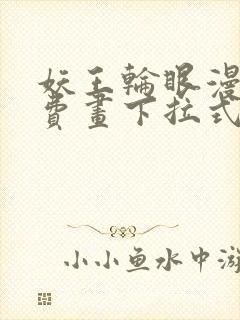 妖王輪眼漫
費畫下拉式
小小鱼水中游